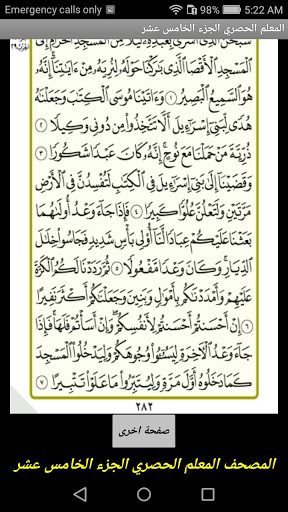 Emergency calls only
5:22 AM
المعلم الحصري الجزء الخامس عشر
سُبْحَٰنَ ٱلَّذِىٓ أَسْرَىٰ بِعَبْدِهِۦ لَيْلًا مِّنَ ٱلْمَسْجِدِ ٱلْحَرَامِ إِلَى
ٱلْمَسْجِدِ ٱلْأَقْصَا ٱلَّذِى بَٰرَكْنَا حَوْلَهُۥ لِنُرِيَهُۥ مِنْ ءَايَٰتِنَآ ۚ إِنَّهُۥ
هُوَ ٱلسَّمِيعُ ٱلْبَصِيرُ ١ وَءَاتَيْنَا مُوسَى ٱلْكِتَٰبَ وَجَعَلْنَٰهُ
هُدًى لِّبَنِىٓ إِسْرَٰٓءِيلَ أَلَّا تَتَّخِذُوا۟ مِن دُونِى وَكِيلًا ٢
ذُرِّيَّةَ مَنْ حَمَلْنَا مَعَ نُوحٍ ۚ إِنَّهُۥ كَانَ عَبْدًا شَكُورًا ٣
وَقَضَيْنَآ إِلَىٰ بَنِىٓ إِسْرَٰٓءِيلَ فِى ٱلْكِتَٰبِ لَتُفْسِدُنَّ فِى ٱلْأَرْضِ
مَرَّتَيْنِ وَلَتَعْلُنَّ عُلُوًّا كَبِيرًا ٤ فَإِذَا جَآءَ وَعْدُ أُولَىٰهُمَا
بَعَثْنَا عَلَيْكُمْ عِبَادًا لَّنَآ أُو۟لِى بَأْسٍ شَدِيدٍ فَجَاسُوا۟ خِلَٰلَ
ٱلدِّيَارِ ۚ وَكَانَ وَعْدًا مَّفْعُولًا ٥ ثُمَّ رَدَدْنَا لَكُمُ ٱلْكَرَّةَ
عَلَيْهِمْ وَأَمْدَدْنَٰكُم بِأَمْوَٰلٍ وَبَنِينَ وَجَعَلْنَٰكُمْ أَكْثَرَ نَفِيرًا
٦ إِنْ أَحْسَنتُمْ أَحْسَنتُمْ لِأَنفُسِكُمْ ۖ وَإِنْ أَسَأْتُمْ فَلَهَا ۚ فَإِذَا
جَآءَ وَعْدُ ٱلْءَاخِرَةِ لِيَسُۥٓـُٔوا۟ وُجُوهَكُمْ وَلِيَدْخُلُوا۟ ٱلْمَسْجِدَ
كَمَا دَخَلُوهُ أَوَّلَ مَرَّةٍ وَلِيُتَبِّرُوا۟ مَا عَلَوْا۟ تَتْبِيرًا ٧
٢٨٢
صفحة اخرى
المصحف المعلم الحصري الجزء الخامس عشر